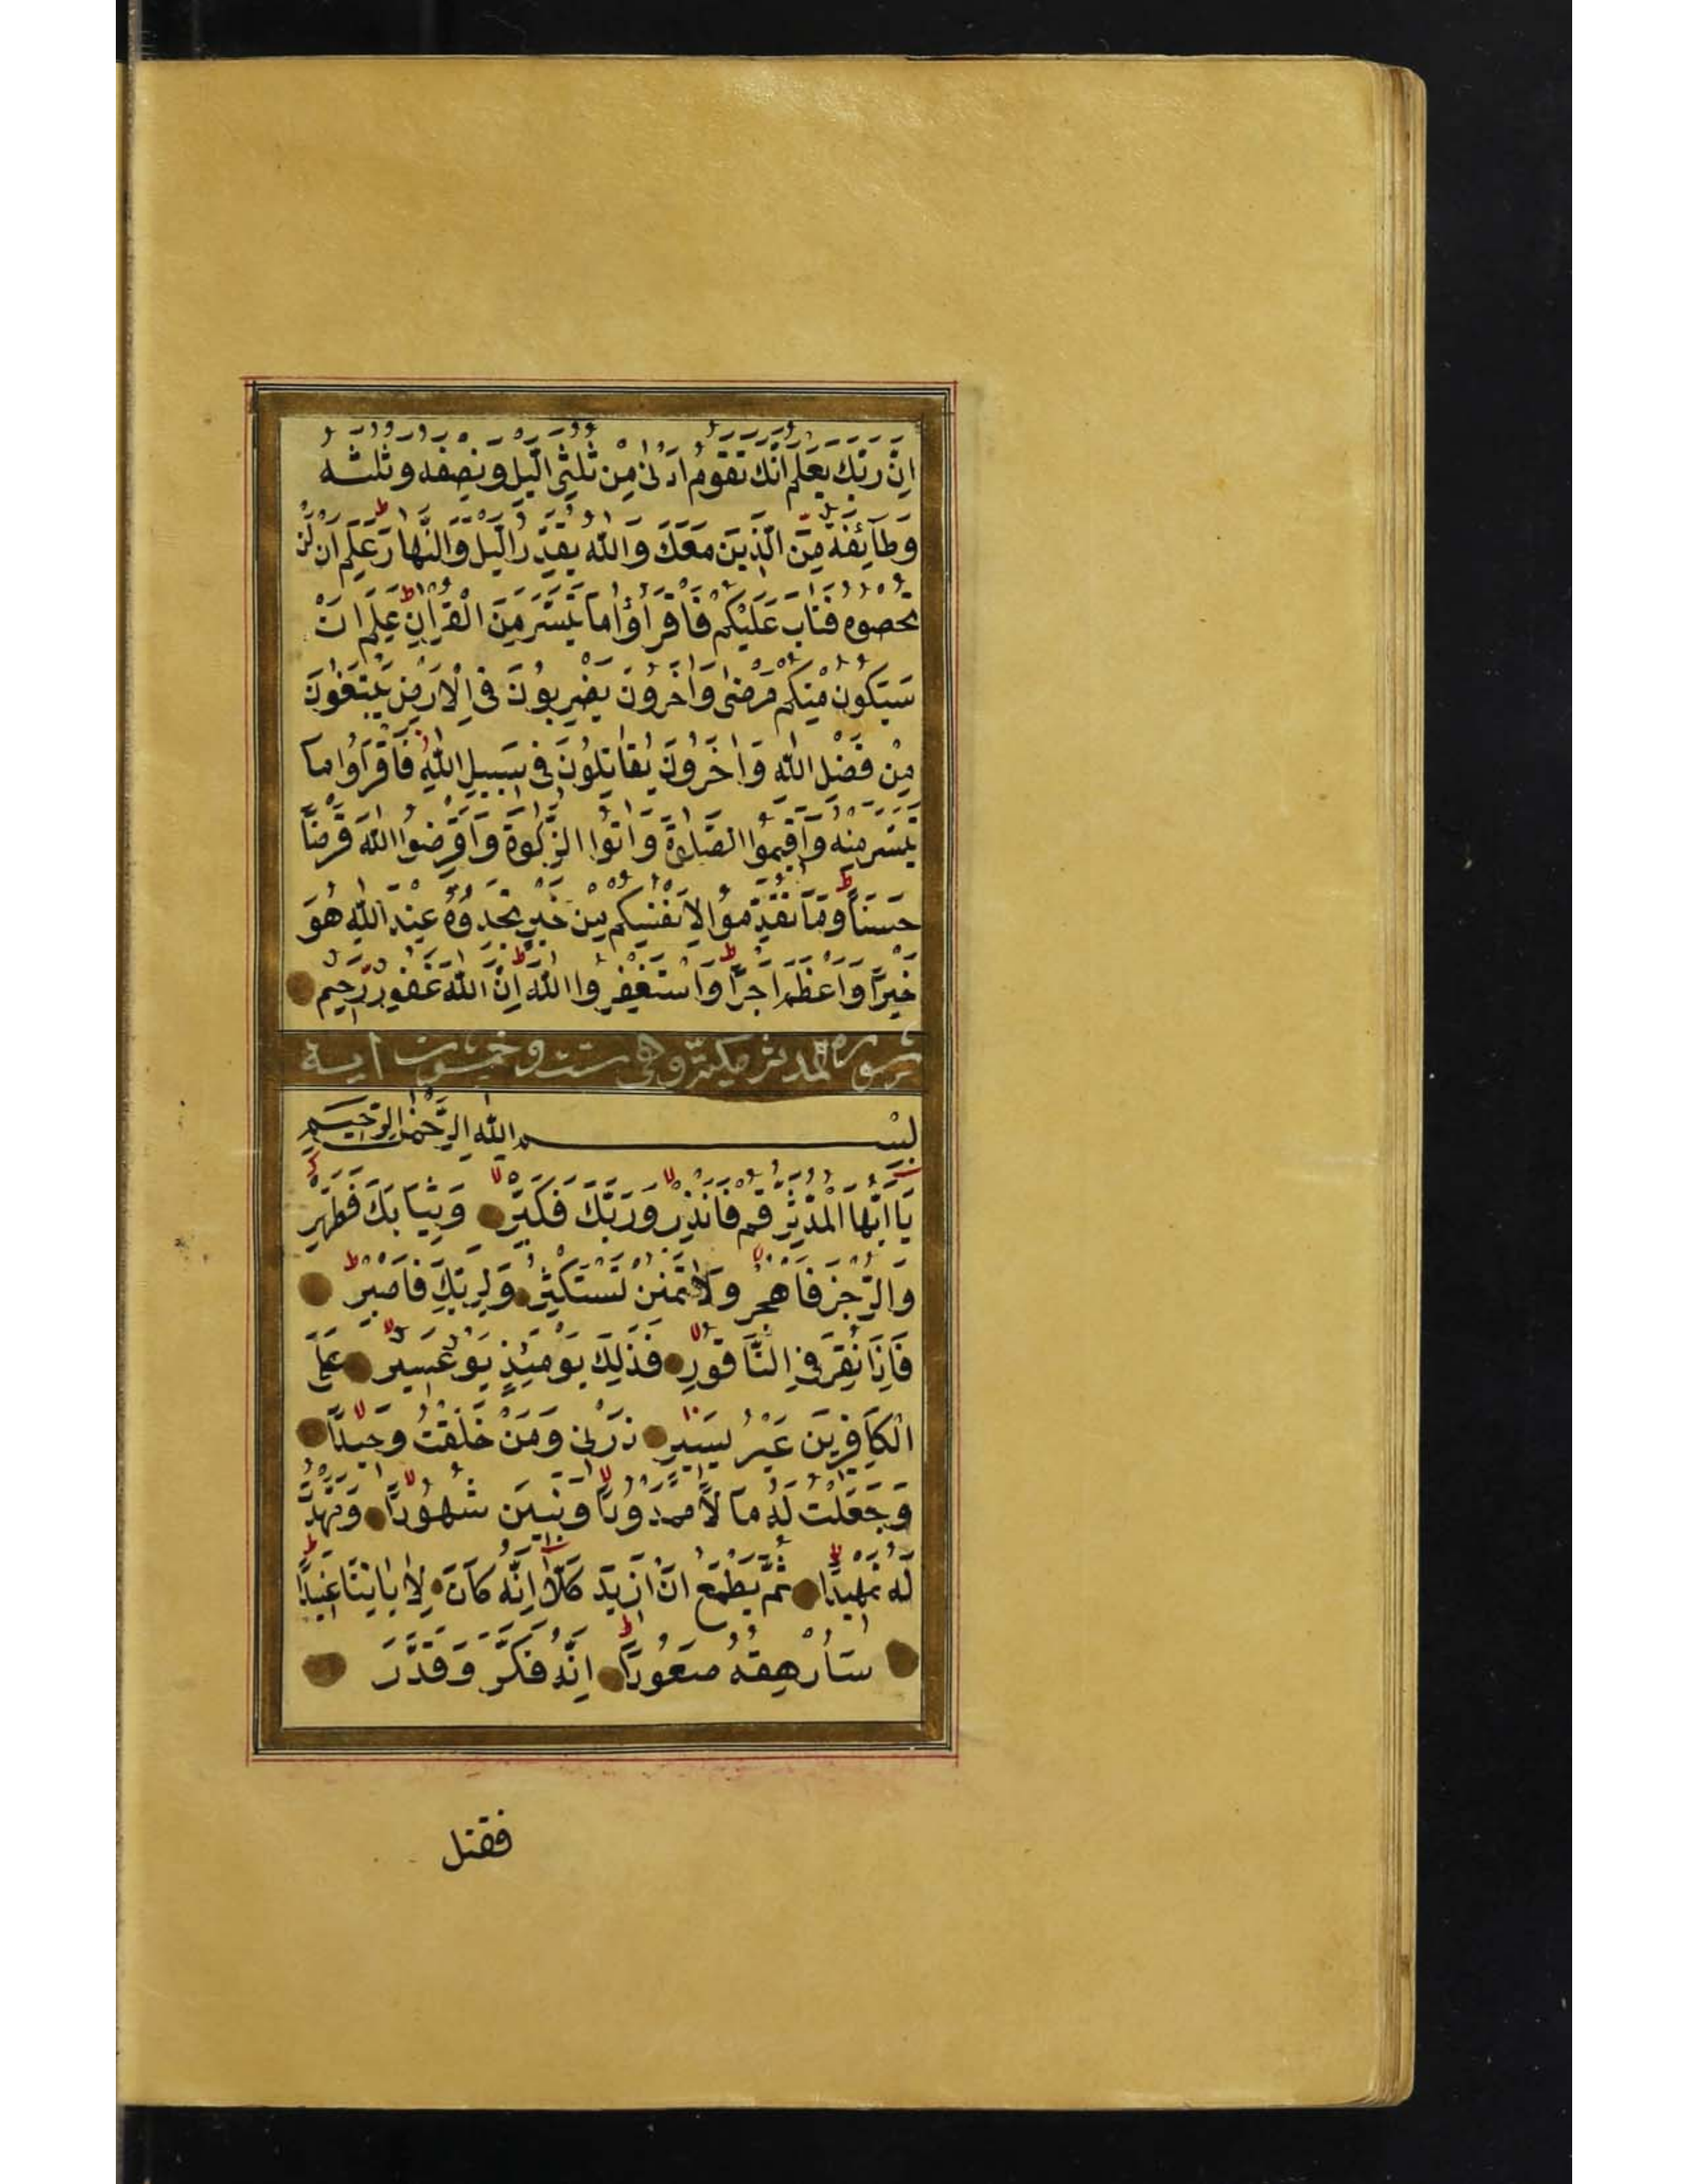 اِنَّ رَبَّكَ يَعْلَمُ اَنَّكَ تَقُومُ اَدْنٰى مِنْ ثُلُثَىِ الَّيْلِ وَنِصْفَهُ وَثُلُثَهُ
وَطَآئِفَةٌ مِّنَ الَّذِينَ مَعَكَ وَاللّٰهُ يُقَدِّرُ الَّيْلَ وَالنَّهَارَ عَلِمَ اَنْ لَنْ
تُحْصُوهُ فَتَابَ عَلَيْكُمْ فَاقْرَاُوْا مَا تَيَسَّرَ مِنَ الْقُرْاٰنِ عَلِمَ اَنْ
سَيَكُونُ مِنْكُمْ مَرْضٰى وَاٰخَرُونَ يَضْرِبُونَ فِى الْاَرْضِ يَبْتَغُونَ
مِنْ فَضْلِ اللّٰهِ وَاٰخَرُونَ يُقَاتِلُونَ فِى سَبِيلِ اللّٰهِ فَاقْرَاُوا مَا
تَيَسَّرَ مِنْهُ وَاَقِيمُوا الصَّلٰوةَ وَاٰتُوا الزَّكٰوةَ وَاَقْرِضُوا اللّٰهَ قَرْضًا
حَسَنًا وَمَا تُقَدِّمُوا لِاَنْفُسِكُمْ مِنْ خَيْرٍ تَجِدُوهُ عِنْدَ اللّٰهِ هُوَ
خَيْرًا وَاَعْظَمَ اَجْرًا وَاسْتَغْفِرُوا اللّٰهَ اِنَّ اللّٰهَ غَفُورٌ رَّحِيمٌ
سورة المدثر مكيّة وهى ست وخمسون اية
بِسْمِ اللّٰهِ الرَّحْمٰنِ الرَّحِيمِ
يَا اَيُّهَا الْمُدَّثِّرُ قُمْ فَاَنْذِرْ وَرَبَّكَ فَكَبِّرْ وَثِيَابَكَ فَطَهِّرْ
وَالرُّجْزَ فَاهْجُرْ وَلَا تَمْنُنْ تَسْتَكْثِرُ وَلِرَبِّكَ فَاصْبِرْ
فَاِذَا نُقِرَ فِى النَّاقُورِ فَذٰلِكَ يَوْمَئِذٍ يَوْمٌ عَسِيرٌ عَلَى
الْكَافِرِينَ غَيْرُ يَسِيرٍ ذَرْنِى وَمَنْ خَلَقْتُ وَحِيدًا
وَجَعَلْتُ لَهُ مَالًا مَمْدُودًا وَبَنِينَ شُهُودًا وَمَهَّدْتُ
لَهُ تَمْهِيدًا ثُمَّ يَطْمَعُ اَنْ اَزِيدَ كَلَّا اِنَّهُ كَانَ لِاٰيَاتِنَا عَنِيدًا
سَاُرْهِقُهُ صَعُودًا اِنَّهُ فَكَّرَ وَقَدَّرَ
فقتل